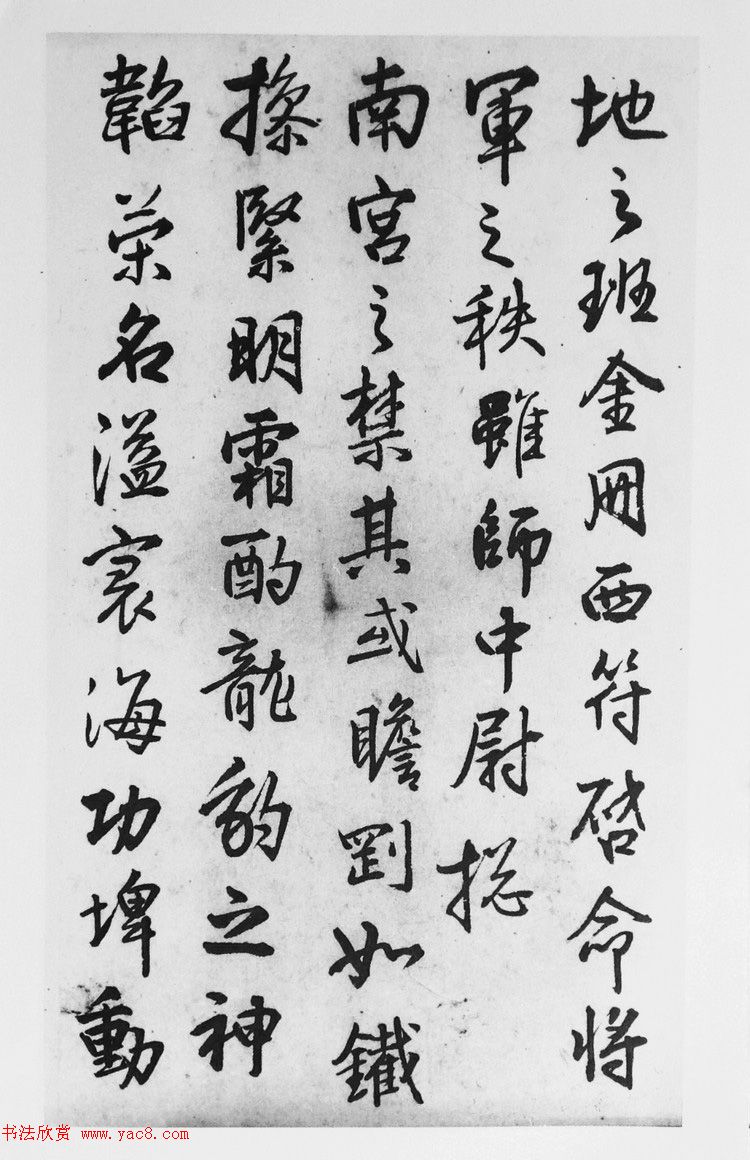 地之班金冊西符啓命將
軍之秩雖師中尉摠
南宮之禁其或瞻劉如鐵
操緊明霜酌龍豹之神
韜榮名溢寰海功埤動
书法欣赏 www.yac8.com